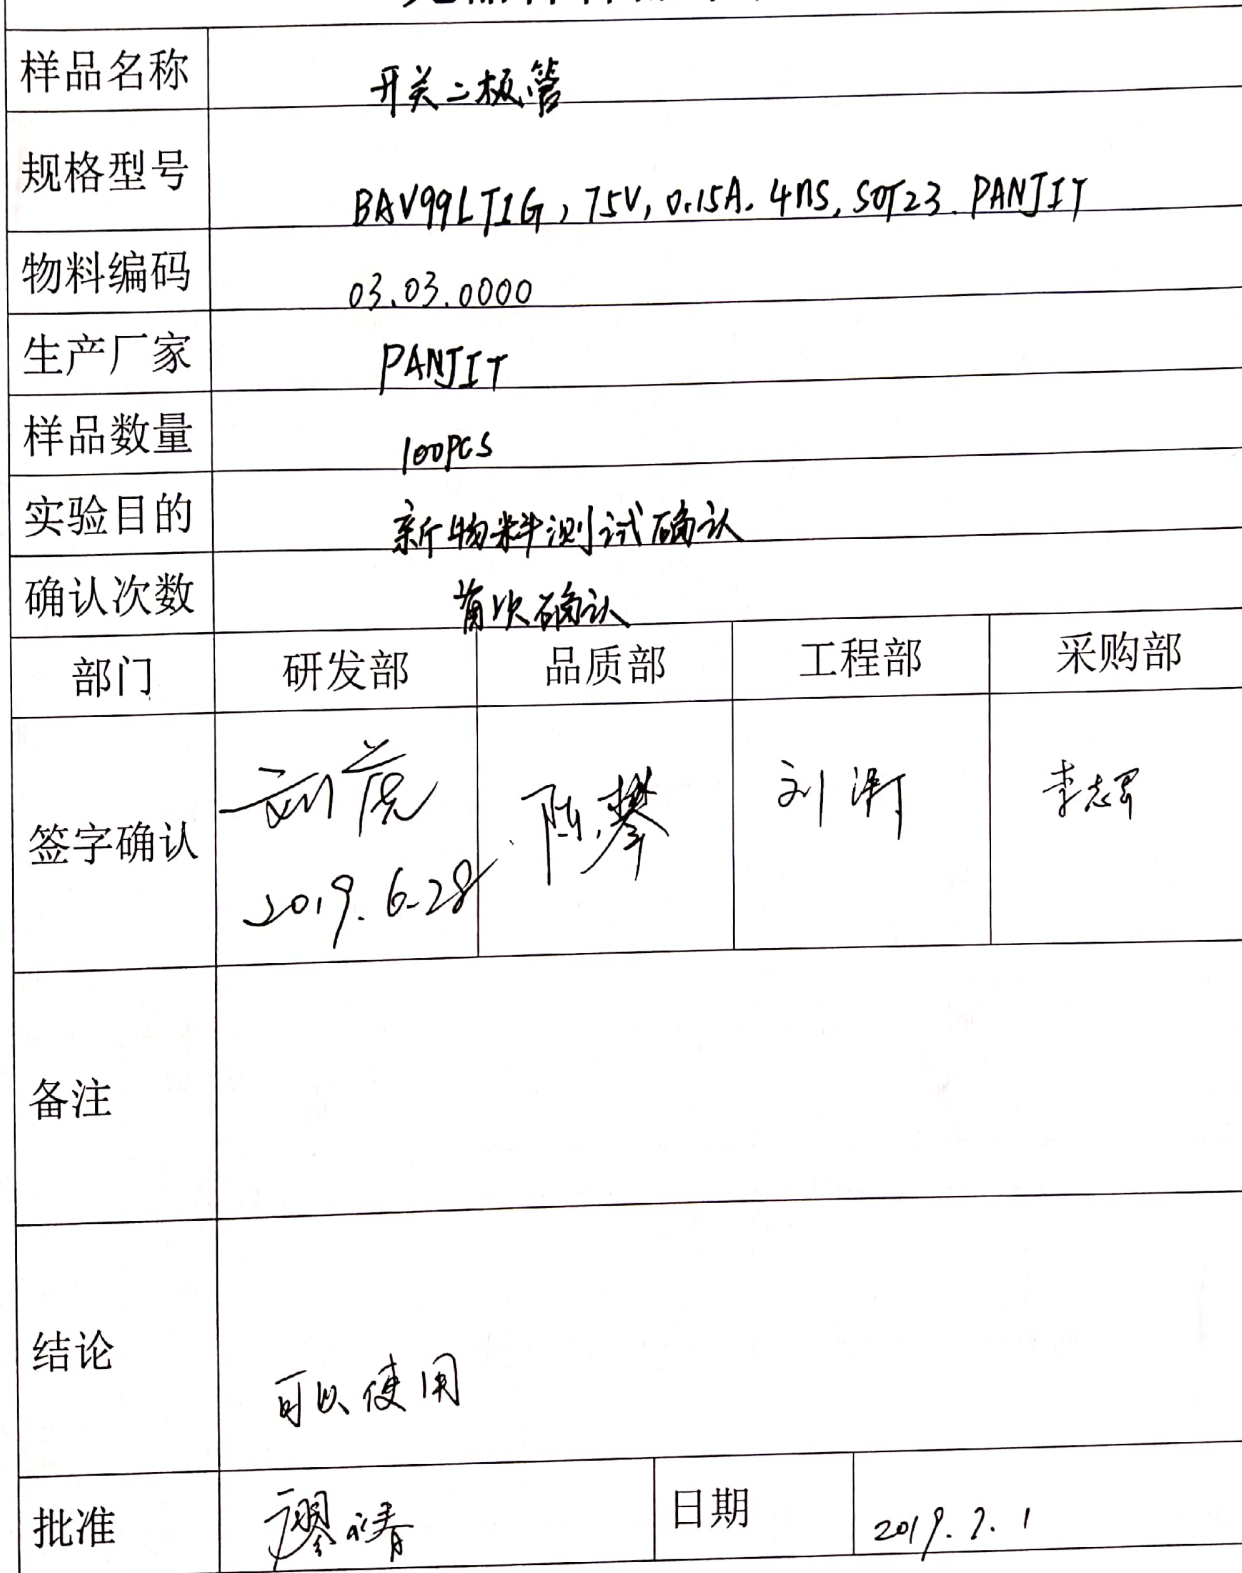 样品名称 开关二极管
规格型号 BAV99LT1G, 75V, 0.15A. 4ns, SOT23. PANJIT
物料编码 03.03.0000
生产厂家 PANJIT
样品数量 100PCS
实验目的 新物料测试确认
确认次数 首次确认
部门 研发部 品质部 工程部 采购部
签字确认 刘 陈攀 刘 李志
2019.6.28
备注
结论
可以使用
批准 廖 日期 2019.7.1